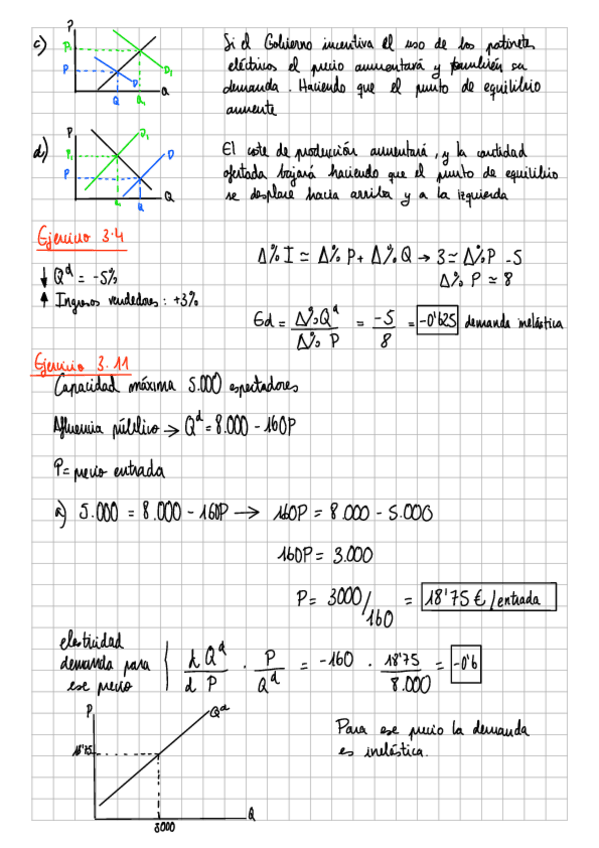 c)
P
P₁
P
D₁
D
Q
Q₁
Q
Si el Gobierno incentiva el uso de los patinetes
eléctricos el precio aumentará y también su
demanda. Haciendo que el punto de equilibrio
aumente
d)
P
P₁
P
D₁
D
Q
Q
El coste de producción aumentará, y la cantidad
ofertada bajará haciendo que el punto de equilibrio
se desplace hacia arriba y a la izquierda
Ejercicio 3.4
↓ Qᵈ = -5%
↑ Ingresos vendedores: +3%
Δ% I ≃ Δ% P + Δ% Q → 3 ≃ Δ% P - 5
Δ% P ≃ 8
Ed = Δ%Qᵈ / Δ% P = -5 / 8 = -0'625 demanda inelástica
Ejercicio 3.11
Capacidad máxima 5.000 espectadores
Afluencia público → Qᵈ = 8.000 - 160P
P = precio entrada
a) 5.000 = 8.000 - 160P → 160P = 8.000 - 5.000
160P = 3.000
P = 3000/160 = 18'75 € /entrada
elasticidad
demanda para
ese precio
d Qᵈ / d P · P / Qᵈ = -160 · 18'75 / 8.000 = -0'6
P
Qᵈ
18'75
5000
Q
Para ese precio la demanda
es inelástica.